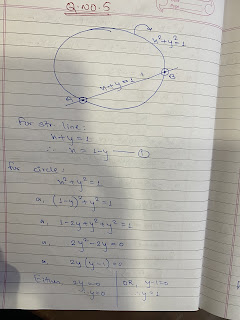 Q.NO.5
x²+y²=1
x+y=1
A
B
For str. line:
x+y=1
∴ x = 1-y —— ①
For circle:
x²+y²=1
or, (1-y)²+y²=1
or, 1-2y+y²+y²=1
or, 2y²-2y=0
or, 2y(y-1)=0
Either, 2y=0 OR, y-1=0
y=0 y=1